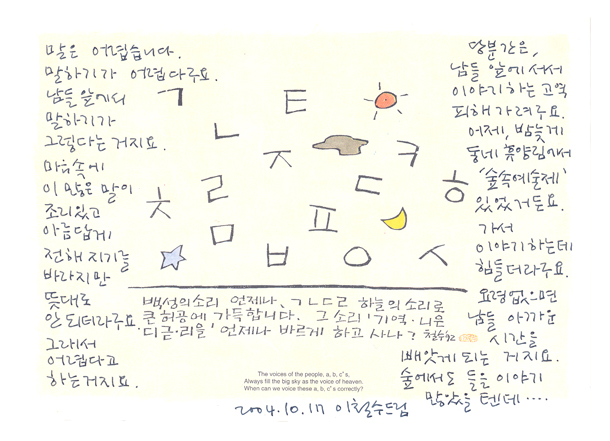 말은 어렵습니다.
말하기가 어렵다구요.
남들 앞에서
말하기가
그렇다는 거지요.
마음속에
이 많은 말이
조리있고
아름답게
전해지기를
바라지만
뜻대로
안 되더라구요.
그래서
어렵다고
하는거지요.
당분간은,
남들 앞에 서서
이야기하는 고역
피해 가려구요.
어제, 밤늦게
동네 휴양림에서
'숲속예술제'
있었거든요.
가서
이야기하는데
힘들더라구요.
요령없으면
남들 아까운
시간을
빼앗게 되는 거지요.
숲에서도 들을 이야기
많았을 텐데····
ㄱ ㅌ
ㄴ ㅈ ㅋ
ㅊ ㄹ ㄷ ㅎ
ㅁ ㅍ
ㅂ ㅇ ㅅ
백성의소리 언제나, ㄱㄴㄷㄹ 하늘의소리로
큰허공에 가득합니다. 그소리 '기역·니은
디귿·리을' 언제나 바르게 하고 사나? 철수
The voices of the people, a, b, c's,
Always fill the big sky as the voice of heaven.
When can we voice these a, b, c's correctly?
2004.10.17 이철수드림